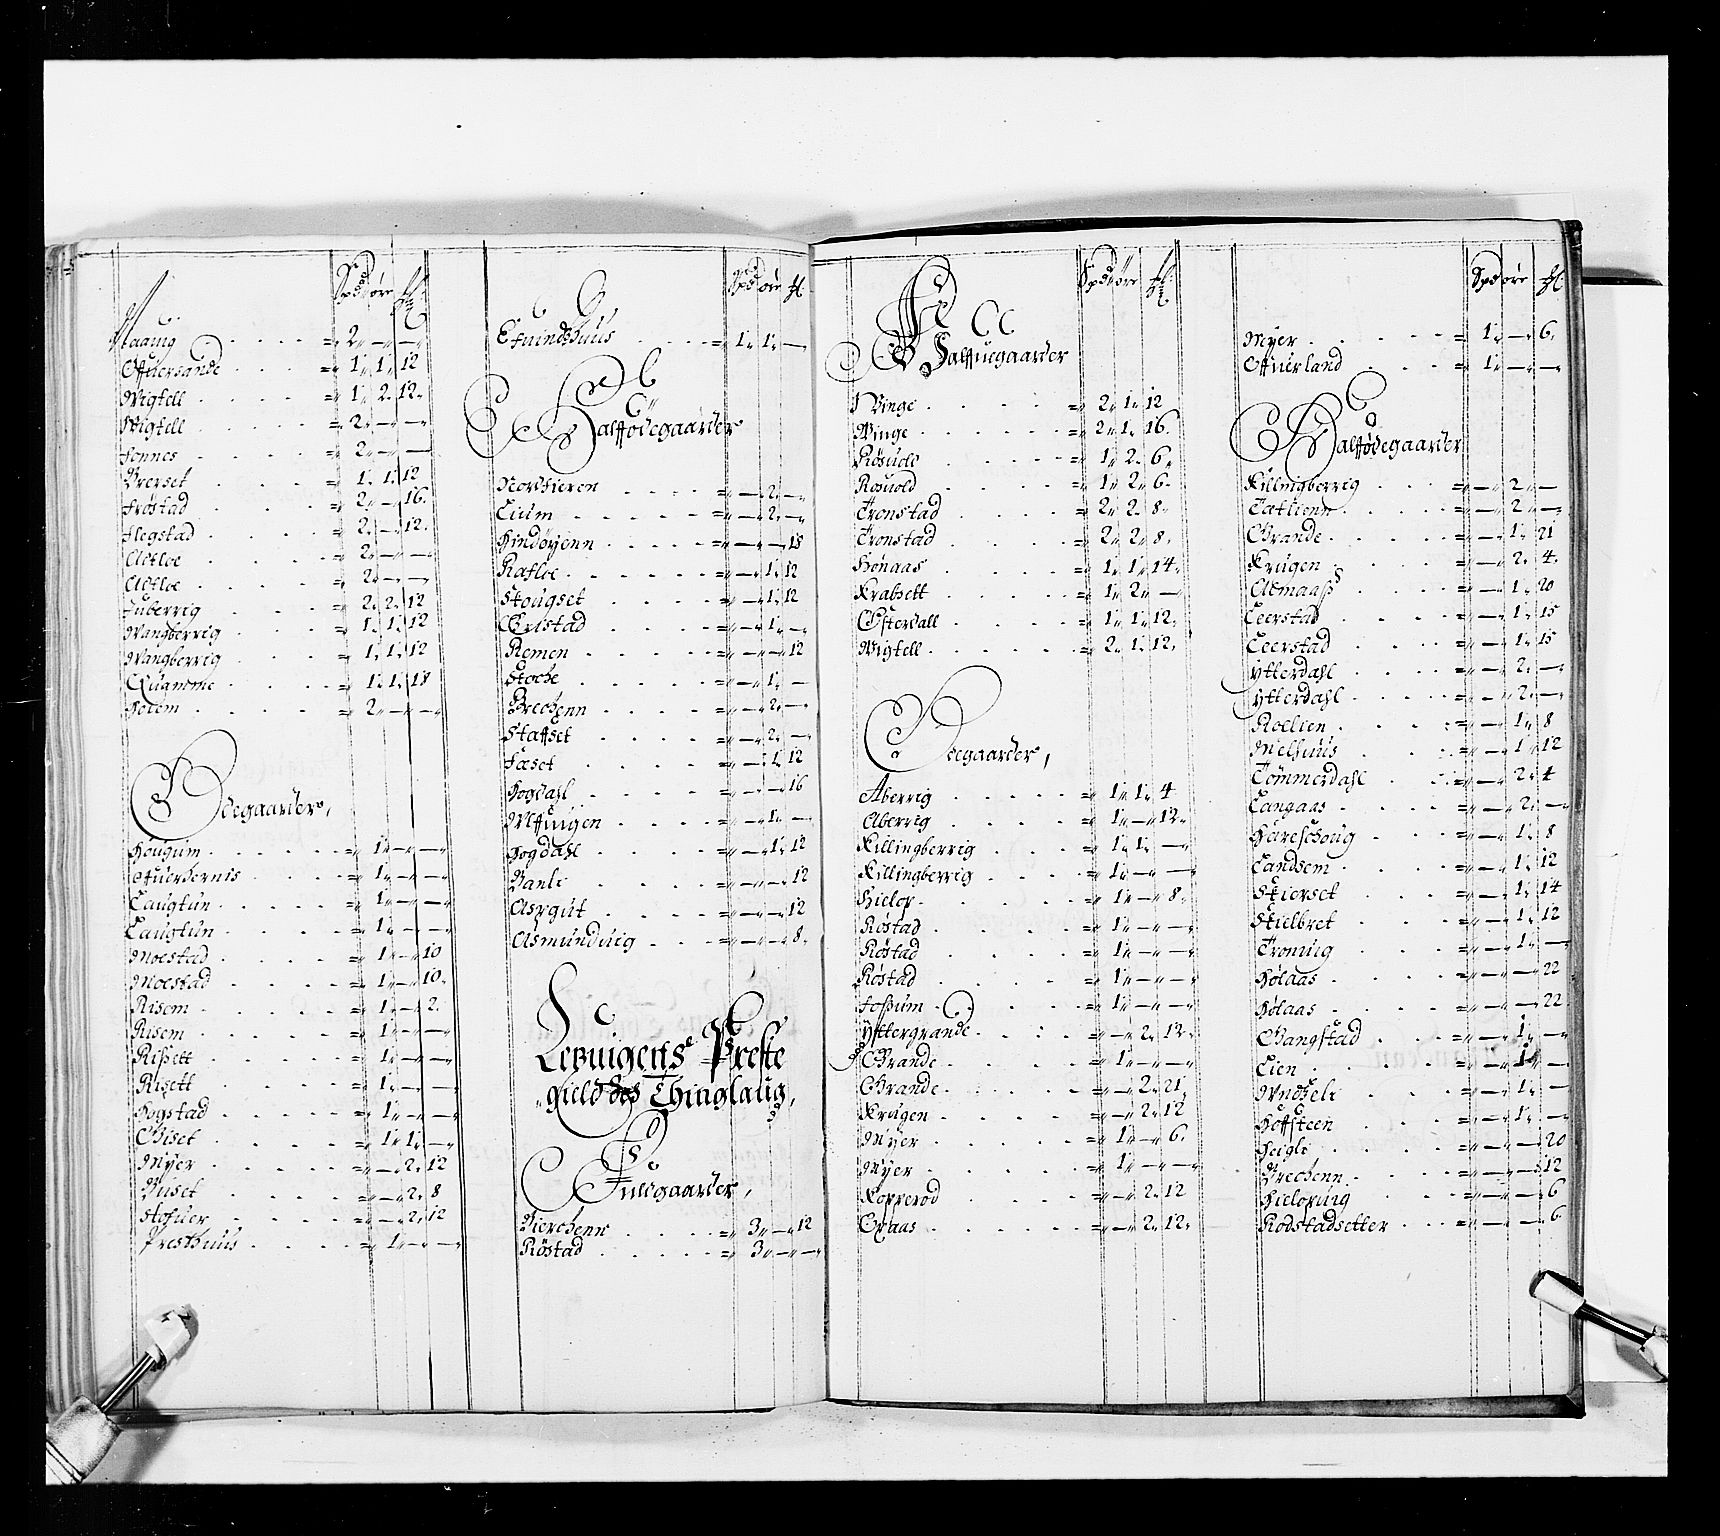 Spd øre
Naavig = 2 — —
Offuersande = 1 1 12
Wigtell = 1 2 12
Wigtell = 2 — —
Fennes = 2 — —
Brerset = 1 1 12
Frøstad = 2 — 16
Flegstad = 2 — 12
Aftloe = 2 — —
Aftloe = 2 — —
Juberrig = 2 2 12
Wangberrig = 1 1 12
Wangberrig = 1 1 12
Quamme = 1 1 18
Hofem = 2 — —
Ødegaarder,
Hougum = 1 — —
Laugtun = 1 — —
Laugtun = 1 — —
Moestad = 1 — 10
Moestad = 1 — 10
Risem = 1 — 2
Risem = 1 — —
Rissett = 1 — —
Risett = 1 — —
Hogstad = 1 — —
Øiset = 1 1 —
Myer = — 2 12
Buset = — 2 8
Hofuer = — 2 12
Presthuus = 1 — —
Spd øre
Efuindshuus = 1 1 —
Halfødegaarder
Nordhieren = — 2 —
Lium = — 2 —
Hindøyenn = — — 18
Rafloe = — 1 12
Skougset = — 1 12
Ørlstad = — 1 —
Remen = — — 12
Stoche = — 1 —
Brechenn = — 2 —
Staffset = — 2 —
Fæset = — 1 12
Hogdahl = — — 16
Uffuigen = — 1 —
Hogdahl = — 1 12
Banle = — — 12
Aspgut = — — 12
Asmunduig = — — 8
Lexuigens Preste
gield og Thinglaug,
Fuldgaarder,
Bierchenn = 3 — 12
Røstad = 3 — —
Spd øre
Halffuegaarder
Winge = 2 1 12
Winge = 2 1 16
Rosuold = 1 2 6
Rosuold = 1 2 6
Tronstad = 2 2 8
Tronstad = 2 2 8
Hønaas = 1 1 14
Krabsett = 1 2 —
Øfterdall = 1 1 12
Wigtell = 2 1 12
Ødegaarder,
Aberrig = 1 1 4
Aberrig = 1 — 12
Killingberrig = 1 1 —
Killingberrig = 1 — —
Hielop = 1 — 8
Røstad = 1 — —
Røstad = 1 — —
Røstad = 1 — —
Fossum = 1 — —
Yttergrande = — 2 12
Grande = 1 — —
Grande = — 2 21
Krugen = — 2 12
Myer = 1 — 6
Myer = 1 — —
Kopperod = — 2 12
Opaas = — 2 12
Spd øre
Myer = 1 — 6
Offuerland = 1 — —
Halfødegaarder
Killingberrig = — 2 —
Tatlienn = — 2 —
Grande = — 1 21
Krugen = — 2 4
Almaass = — 1 20
Leerstad = — 1 15
Leerstad = — 1 15
Ytterdahl = — 2 —
Ytterdahl = — 2 —
Roellien = — 1 8
Melhuus = — 1 12
Tömmerdahl = — 2 4
Langaas = — 2 —
Hareschoug = — 1 8
Landsem = — 1 12
Stierset = — 1 14
Stielbret = — 1 12
Tronuig = — 1 —
Holaas = — — 22
Holaas = — — 22
Gangstad = — 1 —
Lien = — 1 —
Wndsele = — 1 —
Hoffsteen = — 1 —
Heigle = — — 20
Brechenn = — — 12
Hielopuig = — — 6
Rodstadsetter = — — 6